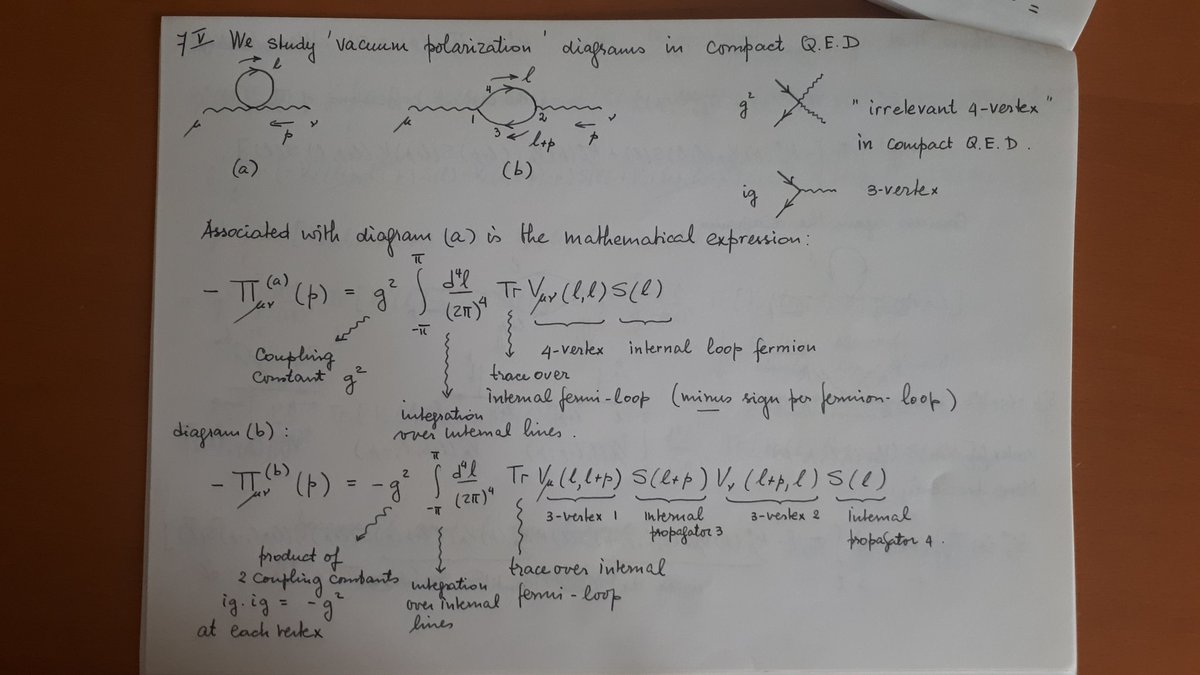 7 V We study 'vacuum polarization' diagrams in compact Q.E.D
l
μ ν
p
(a)
4 l
μ 1 2 ν
3 l+p p
(b)
g² "irrelevant 4-vertex"
in compact Q.E.D.
ig 3-vertex
Associated with diagram (a) is the mathematical expression:
- Π_μν^(a) (p) = g² ∫_{-π}^{π} d⁴l/(2π)⁴ Tr V_μν(l,l) S(l)
4-vertex internal loop fermion
Coupling
constant g²
trace over
internal fermi-loop (minus sign per fermion-loop)
integration
over internal lines.
diagram (b):
- Π_μν^(b) (p) = -g² ∫_{-π}^{π} d⁴l/(2π)⁴ Tr V_μ(l,l+p) S(l+p) V_ν(l+p,l) S(l)
3-vertex 1 internal propagator 3 3-vertex 2 internal propagator 4.
product of
2 coupling constants
ig.ig = -g²
at each vertex
integration
over internal
lines
trace over internal
fermi-loop
=